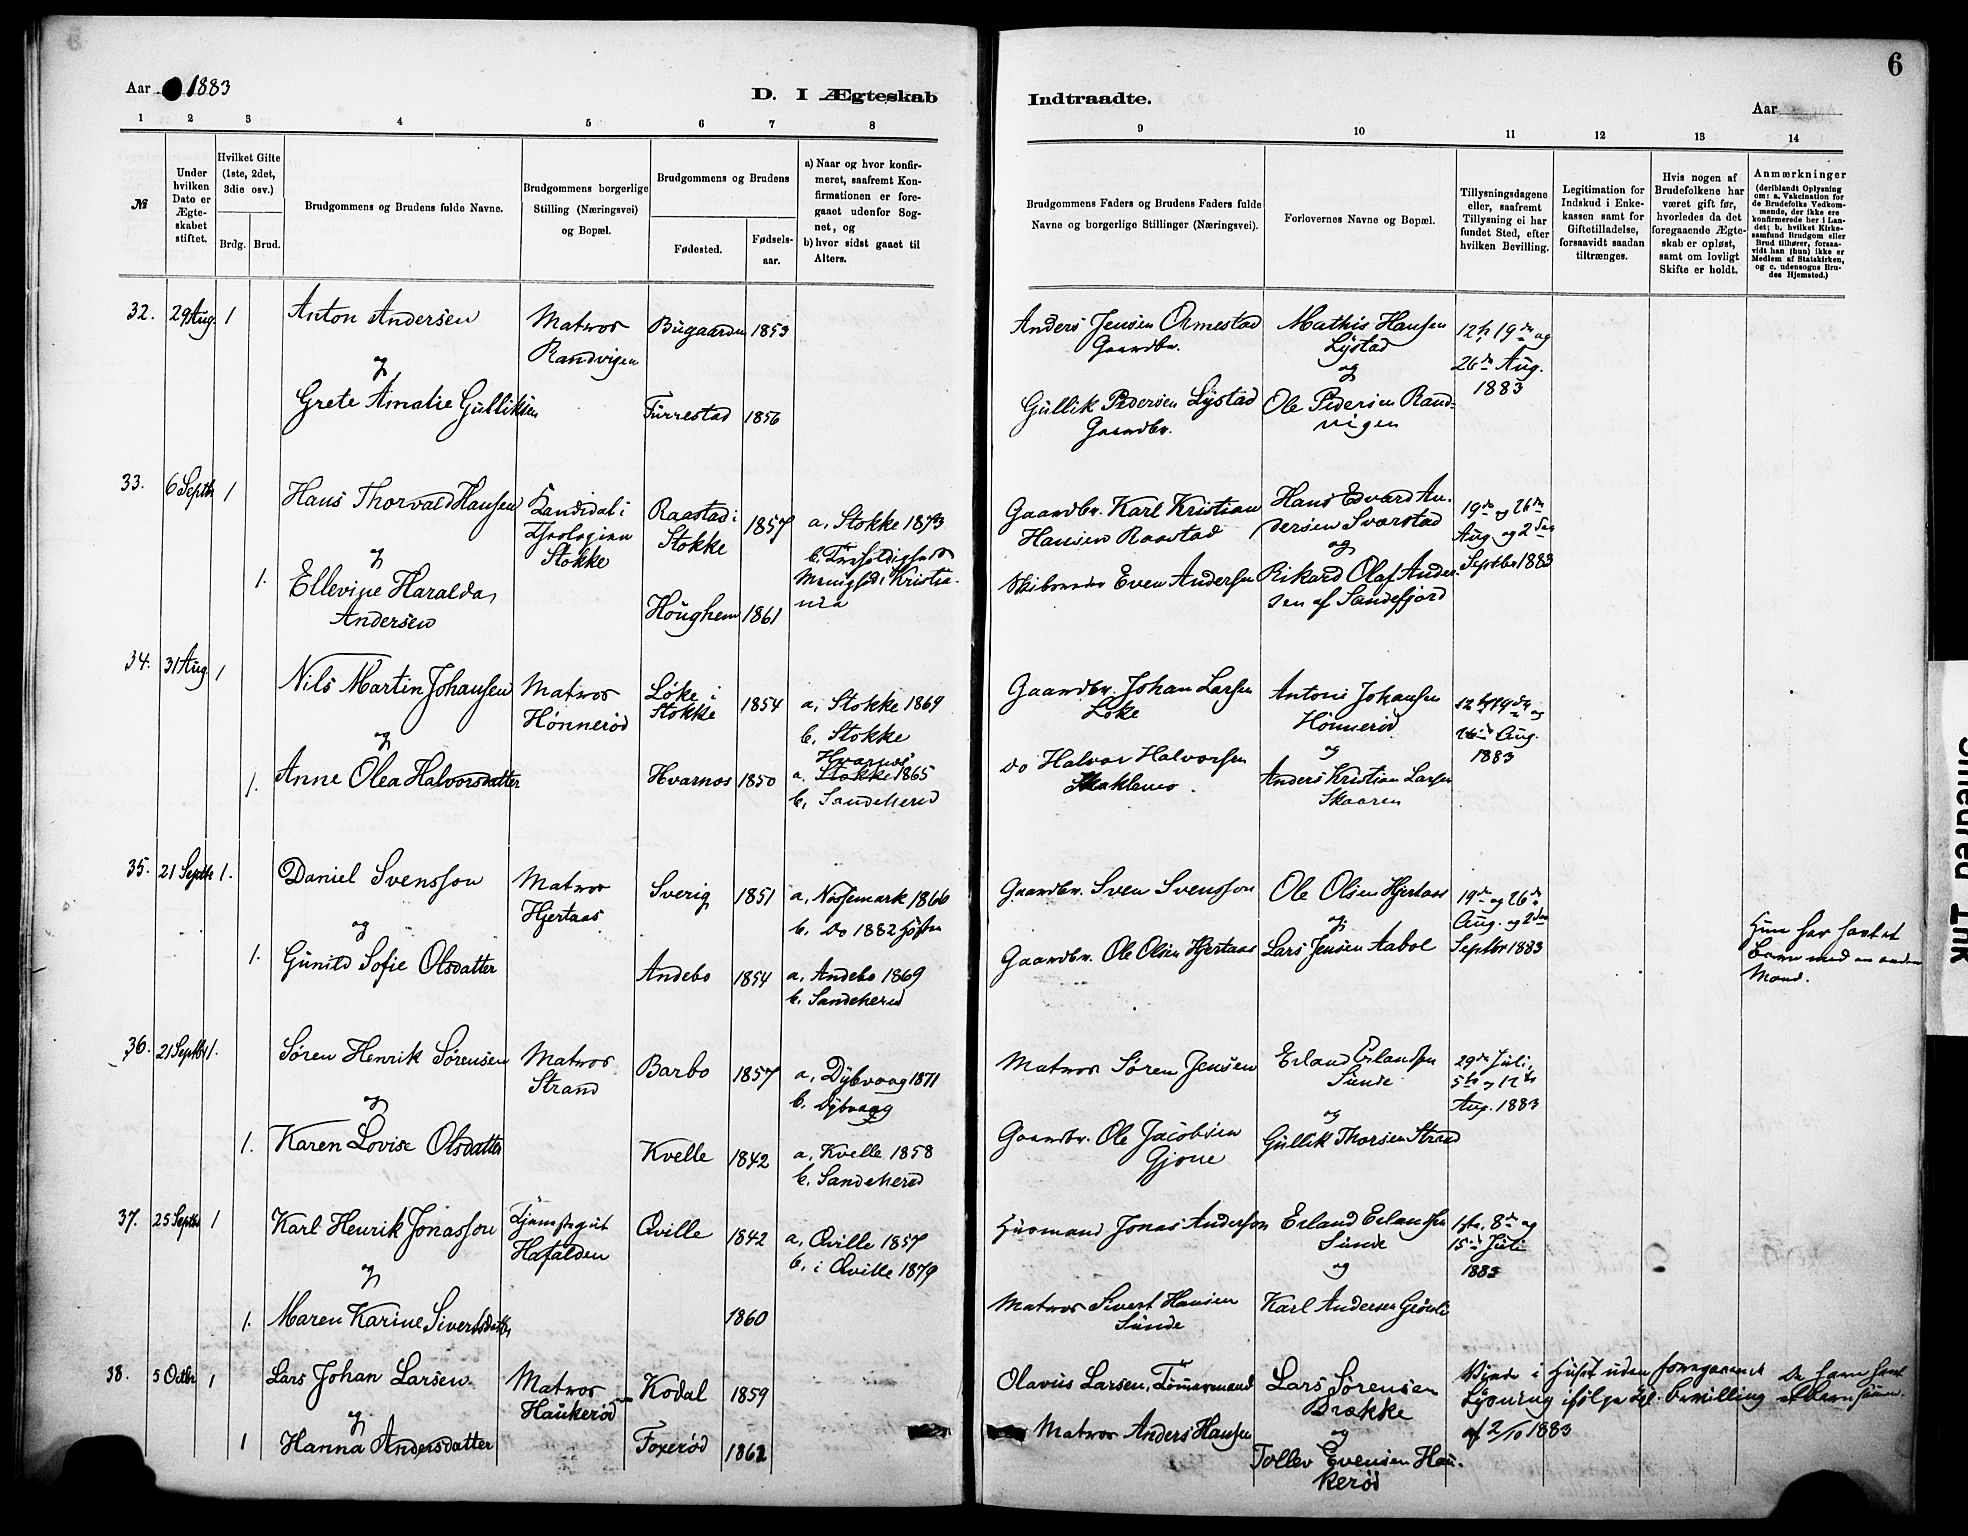 6
Aar 1883
D. I Ægteskab
Indtraadte.
Aar
1 2 3 4 5 6 7 8
9 10 11 12 13 14
№
Under
hvilken
Dato er
Ægte-
skabet
stiftet.
Hvilket Gifte
(1ste, 2det,
3die osv.)
Brdg. Brud.
Brudgommens og Brudens fulde Navne.
Brudgommens borgerlige
Stilling (Næringsvei)
og Bopæl.
Brudgommens og Brudens
Fødested.
Fødsels-
aar.
a) Naar og hvor konfir-
meret, saafremt Kon-
firmationen er fore-
gaaet udenfor Sog-
net, og
b) hvor sidst gaaet til
Alters.
Brudgommens Faders og Brudens Faders fulde
Navne og borgerlige Stillinger (Næringsvei).
Forlovernes Navne og Bopæl.
Tillysningsdagene
eller, saafremt
Tillysning ei har
fundet Sted, efter
hvilken Bevilling.
Legitimation for
Indskud i Enke-
kassen samt for
Giftetilladelse,
forsaavidt saadan
tiltrænges.
Hvis nogen af
Brudefolkene har
været gift før,
hvorledes da det
foregaaende Ægte-
skab er opløst,
samt om lovligt
Skifte er holdt.
Anmærkninger
(deriblandt Oplysning
om: a. Vakcination for
de Brudefolks Vedkom-
mende, der ikke ere
konfirmerede her i Lan-
det; b. hvilket Kirke-
samfund Brudgom eller
Brud tilhører, forsaa-
vidt han (hun) ikke er
Medlem af Statskirken,
og c. udensogns Bru-
des Hjemsted.)
32. 29 Aug. 1
Anton Andersen
og
Grete Amalie Gulliksen
Matros
Randvigen
Bugaarden 1853
Furrestad 1856
Anders Jensen Ormestad
Gaardbr.
Gullik Pedersen Lystad
Gaardbr.
Mathis Hansen
Lystad
og
Ole Pedersen Rand-
vigen
12te 19de og
26de Aug.
1883
33. 6 Septbr 1
Hans Thorvald Hansen
og
1. Ellevine Haralda
Andersen
Kandidat i
Theologien
Stokke
Raastad i
Stokke
1857
Houghem 1861
a, Stokke 1873
b. Trefoldigheds
Menighed i Kristia-
nia
Gaardbr. Karl Kristian
Hansen Raastad
Skibsreder Even Andersen
Hans Edvard An-
dersen Svarstad
og
Rikard Olaf Ander-
sen af Sandefjord
19de og 26de
Aug. og 2den
Septbr 1883
34. 31 Aug 1
Nils Martin Johansen
og
1. Anne Olea Halvorsdatter
Matros
Hønnerød
Løke i
Stokke
1854
Hvarnes 1850
a, Stokke 1869
b, Stokke
Hvarnes
a, Stokke 1865
b, Sandeherred
Gaardbr. Johan Larsen
Løke
do Halvor Halvorsen
Anton Johansen
Hønnerød
og
Anders Kristian Larsen
Skaaren
12te 19de og
26de Aug.
1883
35. 21 Septbr 1.
Daniel Svensson
og
1. Gunild Sofie Olsdatter
Matros
Hjertaas
Sverig 1851
Andebo 1854
a, Nøssemark 1866
b. do 1882 Høsten
a, Andebo 1869
b. Sandeherred
Gaardbr. Sven Svensson
Gaardbr. Ole Olsen Hjertaas
Ole Olsen Hjertaas
og
Lars Jensen Aabol
19de og 26de
Aug. og 2den
Septbr 1883
Hun har havt et
Barn med en anden
Mand.
36. 21 Septbr 1.
Søren Henrik Sørensen
og
1. Karen Lovise Olsdatter
Matros
Strand
Barbo 1857
Kvelle 1842
a, Dybvaag 1871
b. Dybvaag
a, Kvelle 1858
b. Sandeherred
Matros Søren Jensen
Gaardbr. Ole Jacobsen
Gjone
Erland Erlandsen
Sunde
og
Gullik Thorsen Strand
29de Juli,
5te og 12te
Aug. 1883
37. 25 Septbr 1
Karl Henrik Jonasson
og
1. Maren Karine Sivertsdatter
Tjenestegut
Hafalden
Qville 1842
1860
a, Qville 1857
b. i Qville 1879
Husmand Jonas Anderson
Matros Sivert Hansen
Sunde
Erland Erlandsen
Sunde
og
Karl Andersen Grønli
1ste, 8de og
15de Juli
1883
38. 5 Octbr 1
Lars Johan Larsen
og
1 Hanna Andersdatter
Matros
Haukerød
Kodal 1859
Foxerød 1862
Olavus Larsen, Tømermand
Matros Anders Hansen
Lars Sørensen
Brække
og
Tollev Evensen Hau-
kerød
Viede i Huset uden foregaaende
Lysning ifølge kgl. Bevilling
af 2/10 1883
De have havt
et Barn sammen.